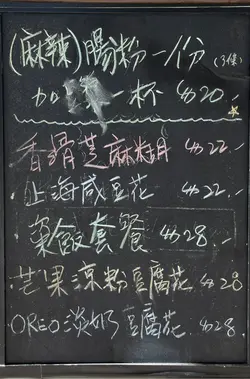 (麻辣)腸粉一份 (3條)
加 一杯 $20.-
香滑芝麻糊 $22.-
上海咸豆花 $22.-
粢飯套餐 $28.-
芒果涼粉豆腐花 $28
OREO淡奶豆腐花 $28.